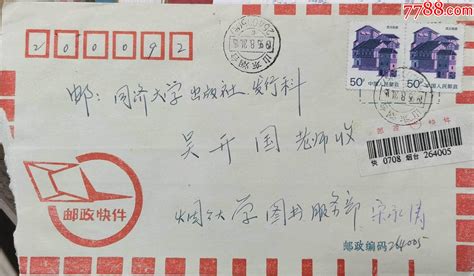 7788.com
200092
50分
中国人民邮政
50分
中国人民邮政
邮：同济大学出版社 发行科
吴开国老师收
邮政快件
快 0708 烟台 264005
邮政快件
烟台大学图书服务部
邮政编码264005